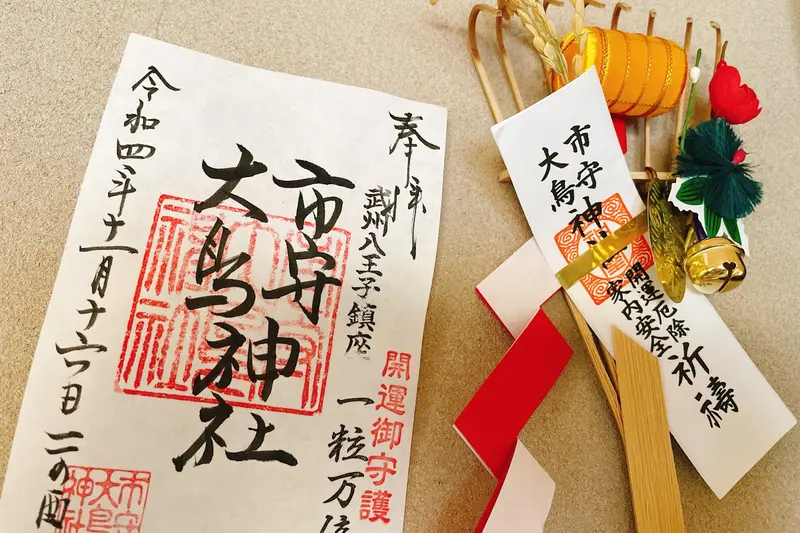 奉拝
武州八王子鎮座
開運御守護
一粒万倍
市守
大鳥神社
令和四年十一月十六日
二の酉
市守
大鳥
神社
市守
大鳥神社
開運厄除
家内安全
祈禱